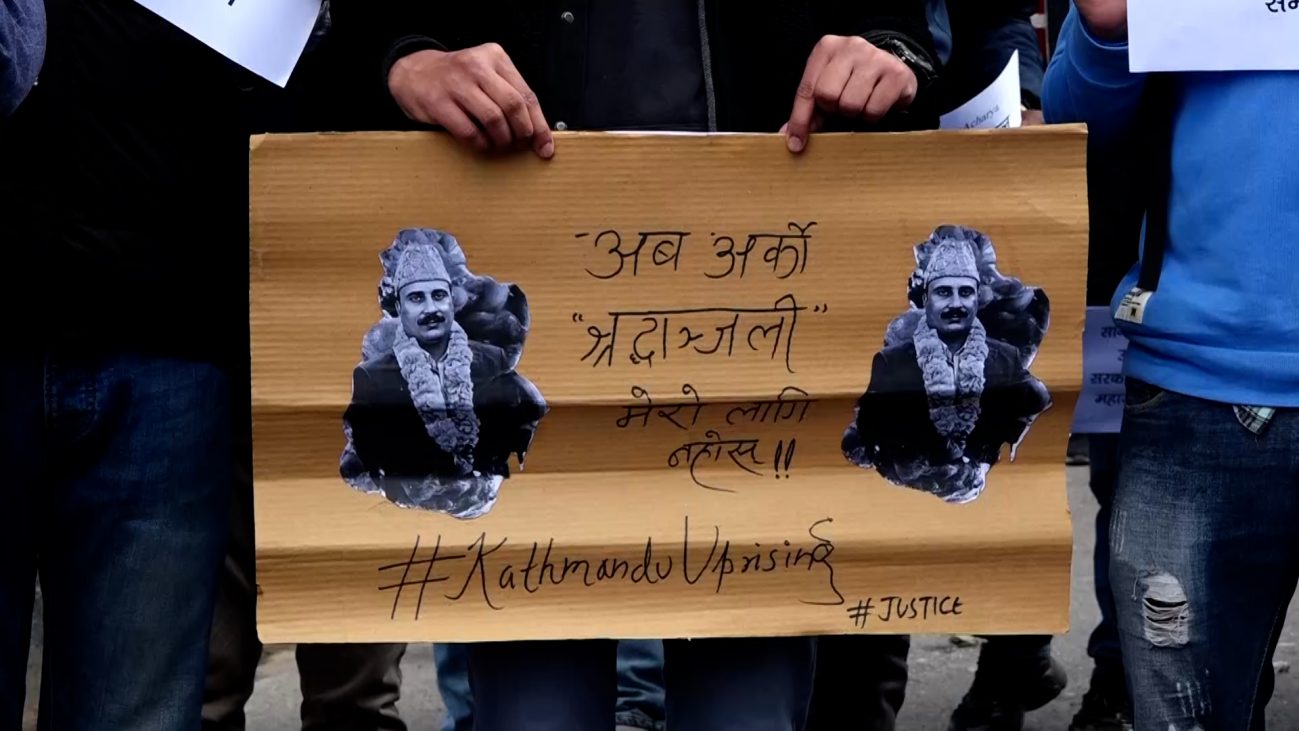 अब अर्को
"श्रद्धाञ्जली"
मेरो लागि
नहोस् !!
#KathmanduUprising
#JUSTICE
Acharya